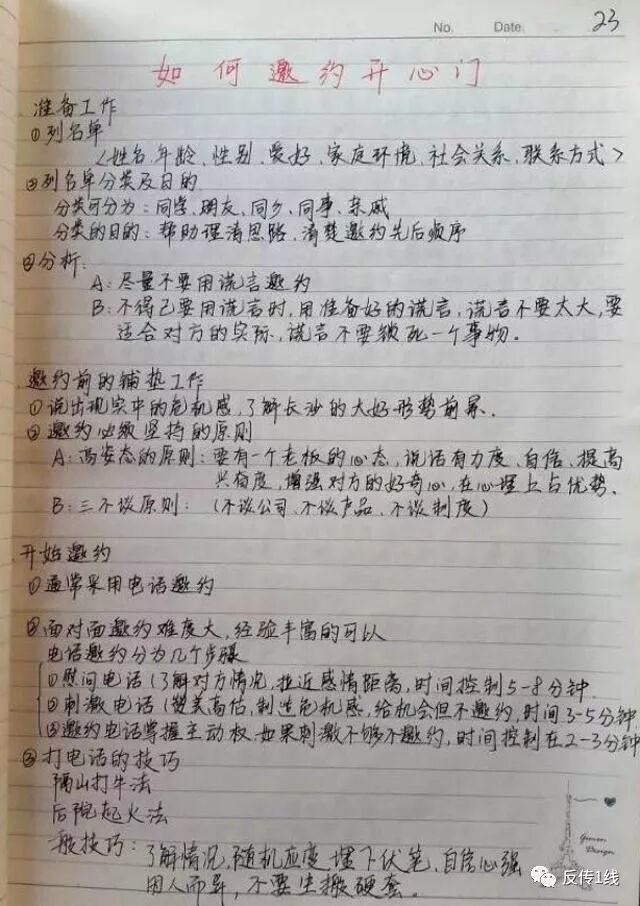 No. Date. 23
如何邀约开心门
准备工作
①列名单
〈姓名、年龄、性别、爱好、家庭环境、社会关系、联系方式〉
②列名单分类及目的
分类可分为:同学、朋友、同乡、同事、亲戚
分类的目的:帮助理清思路、清楚邀约先后顺序
③分析:
A:尽量不要用谎言邀约
B:不得已要用谎言时,用准备好的谎言,谎言不要太大,要
适合对方的实际,谎言不要锁死一个事物。
邀约前的铺垫工作
①说出现实中的危机感,了解长沙的大好形势前景.
②邀约必须坚持的原则
A:高姿态的原则:要有一个老板的心态,说话有力度、自信、提高
兴奋度,增强对方的好奇心,在心理上占优势.
B:三不谈原则:(不谈公司、不谈产品、不谈制度)
开始邀约
①通常采用电话邀约
②面对面邀约难度大,经验丰富的可以
电话邀约分为几个步骤
①慰问电话(了解对方情况,拉近感情距离,时间控制5-8分钟
②刺激电话(赞美高估,制造危机感,给机会但不邀约,时间3-5分钟
③邀约电话掌握主动权.如果刺激不够不邀约,时间控制在2-3分钟
③打电话的技巧
隔山打牛法
后院起火法
一般技巧:了解情况,随机应变,埋下伏笔,自信心强
因人而异,不要生搬硬套。
Design
反传1线